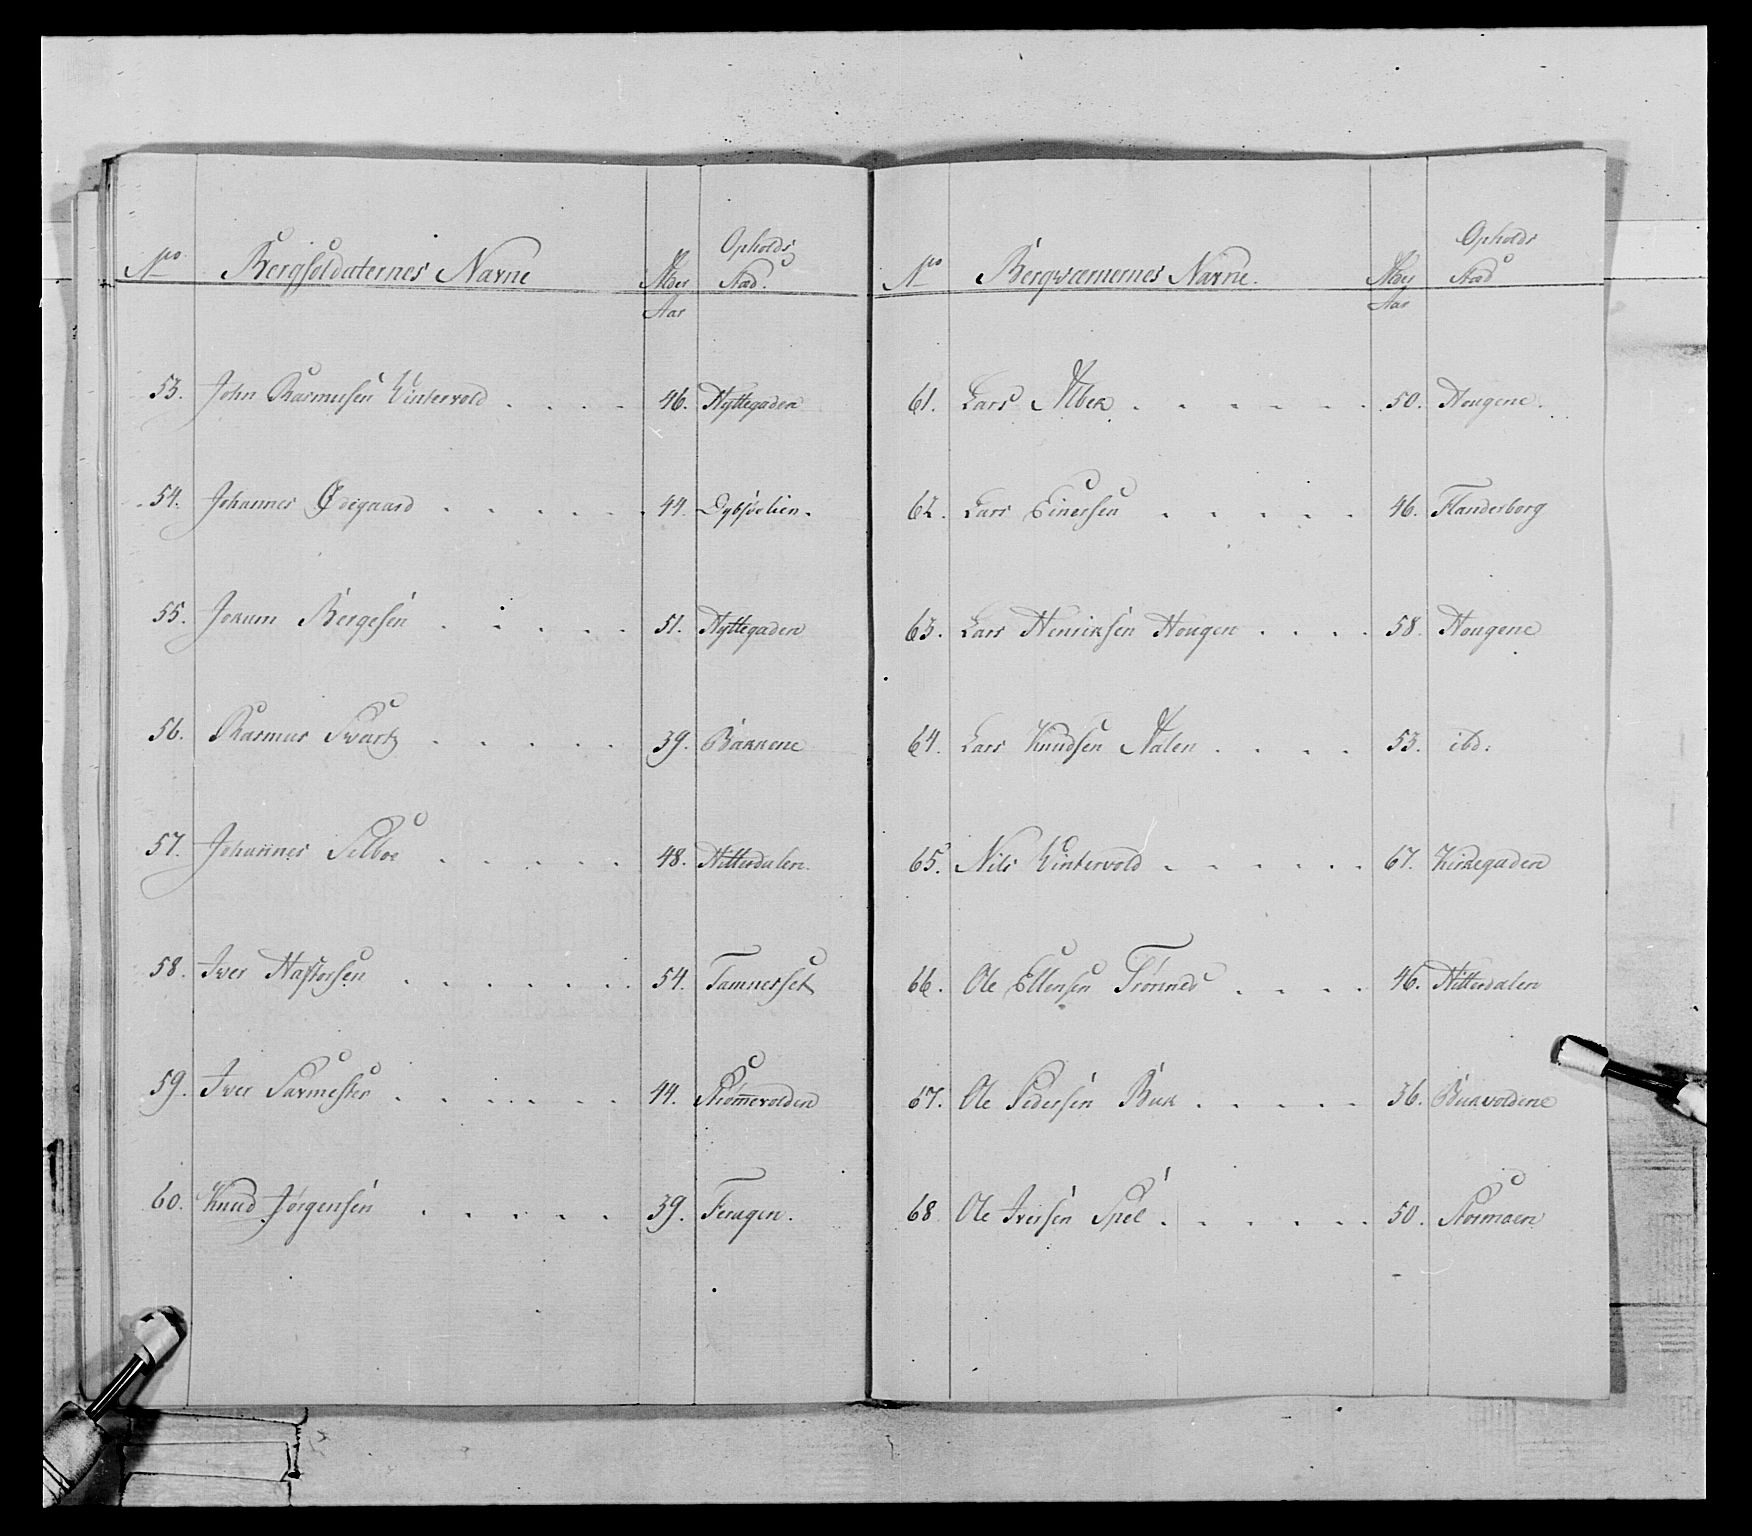 No Bergsoldaternes Navne Alder Aar Opholds Stæd.
53. John Rasmusen Vintervold . . . . 46. Hyttegaden
54. Johannes Ødegaard . . . . . 44. Dybsølien.
55. Jokum Børgesen . . . . . 51. Hyttegaden
56. Rasmus Svartz . . . . . 39. Bakkene
57. Johannes Selboe . . . . . 48. Hitterdalen.
58. Iver Hastorsen . . . . . . 54. Tamnesset
59. Iver Sarmester . . . . . . 44. Skömmevolden
60. Knud Jørgensen . . . . . 39. Feragen.
No Bergværnernes Navne. Alder Aar Opholds Stæd
61. Lars Albek . . . . . . 50. Hougene.
62. Lars Einersen . . . . . 46. Flanderborg
63. Lars Henriksen Hougen . . . . 58. Hougene
64. Lars Knudsen Aalen . . . . 53. ibd:
65. Nils Vintervold . . . . . . 67. Kirkegaden
66. Ole Ellensen Trönnes . . . . 46. Hitterdalen
67. Ole Pedersen Buk . . . . . 36. Bukvoldene
68 Ole Iversen Spel . . . . . . 50. Stormoen